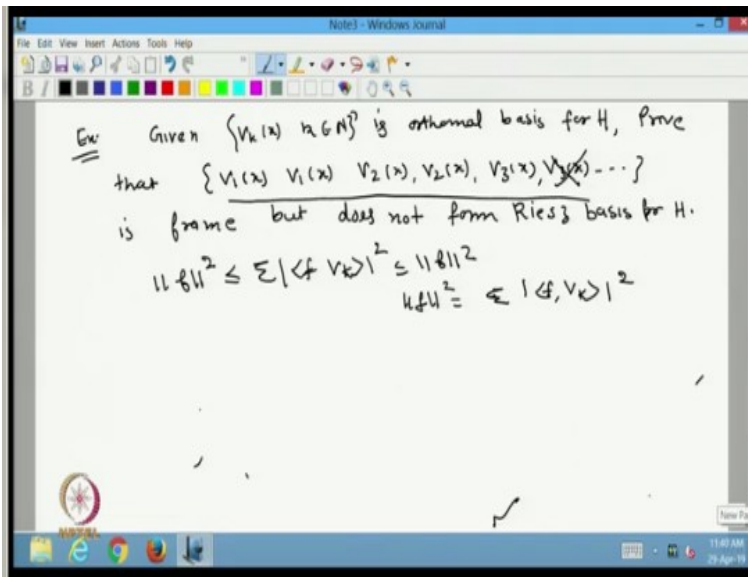 Note3 - Windows Journal
File Edit View Insert Actions Tools Help
Ex: Given {V_k(x) k∈N} is orthornal basis for H, Prove
that {V_1(x) V_1(x) V_2(x), V_2(x), V_3(x), V_3(x) ---}
is frame but does not form Riesz basis for H.
||f||^2 ≤ Σ|<f V_k>|^2 ≤ ||f||^2
||f||^2 = Σ |<f, V_k>|^2
NPTEL
New Pa
11:40 AM
29-Apr-19